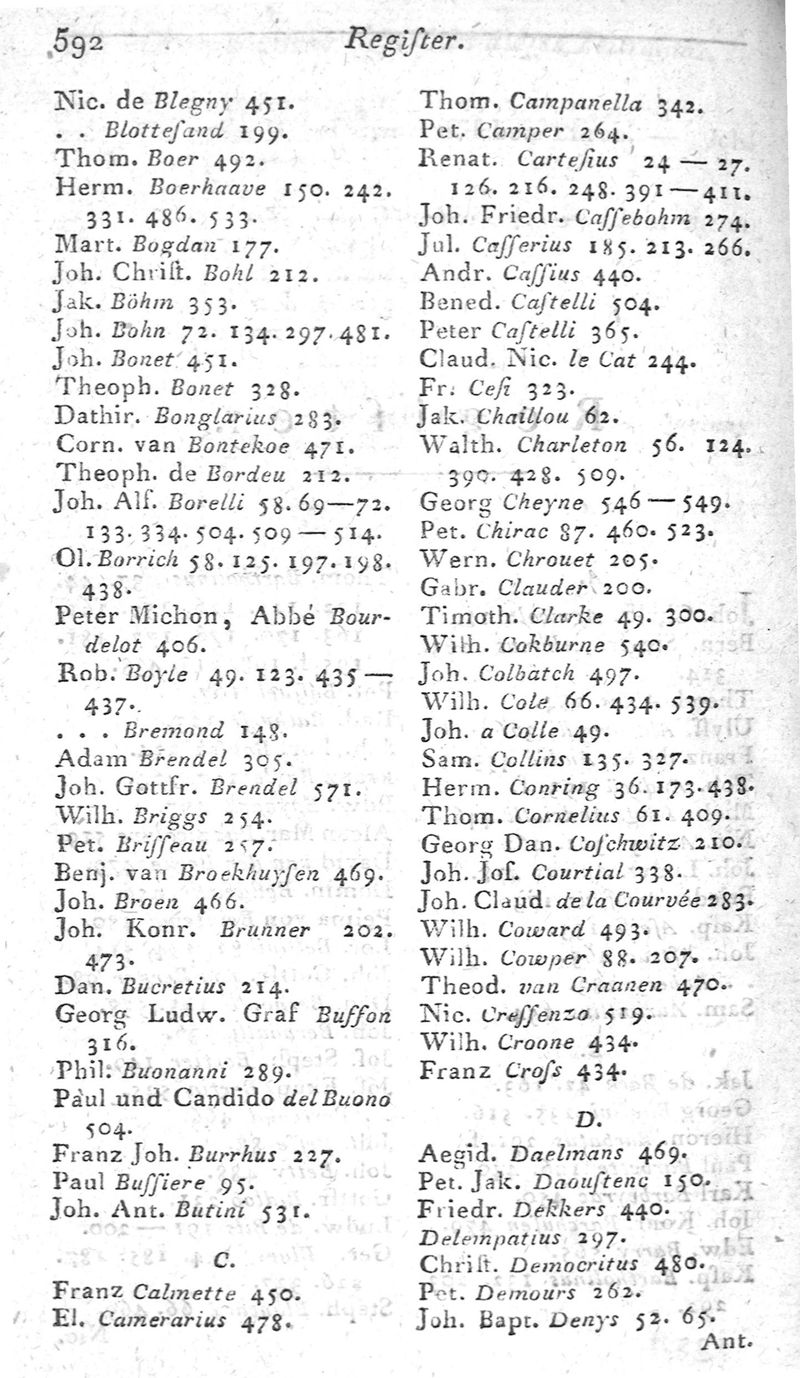 592 Regiſter.
Nic. de Blegny 451.
. . Blotteſand 199.
Thom. Boer 492.
Herm. Boerhaave 150. 242.
331. 486. 533.
Mart. Bogdan 177.
Joh. Chriſt. Bohl 212.
Jak. Böhm 353.
Joh. Bohn 72. 134. 297. 481.
Joh. Bonet 451.
Theoph. Bonet 328.
Dathir. Bonglarius 283.
Corn. van Bontekoe 471.
Theoph. de Bordeu 212.
Joh. Alf. Borelli 58. 69—72.
133. 334. 504. 509 — 514.
Ol. Borrich 58. 125. 197. 198.
438.
Peter Michon, Abbé Bour-
delot 406.
Rob. Boyle 49. 123. 435 —
437.
. . . Bremond 148.
Adam Brendel 305.
Joh. Gottfr. Brendel 571.
Wilh. Briggs 254.
Pet. Briſſeau 257.
Benj. van Broekhuyſen 469.
Joh. Broen 466.
Joh. Konr. Brunner 202.
473.
Dan. Bucretius 214.
Georg Ludw. Graf Buffon
316.
Phil. Buonanni 289.
Paul und Candido del Buono
504.
Franz Joh. Burrhus 227.
Paul Buſſiere 95.
Joh. Ant. Butini 531.
C.
Franz Calmette 450.
El. Camerarius 478.
Thom. Campanella 342.
Pet. Camper 264.
Renat. Carteſius 24 — 27.
126. 216. 248. 391 — 411.
Joh. Friedr. Caſſebohm 274.
Jul. Caſſerius 185. 213. 266.
Andr. Caſſius 440.
Bened. Caſtelli 504.
Peter Caſtelli 365.
Claud. Nic. le Cat 244.
Fr. Ceſi 323.
Jak. Chaillou 62.
Walth. Charleton 56. 124.
390. 428. 509.
Georg Cheyne 546 — 549.
Pet. Chirac 87. 460. 523.
Wern. Chrouet 205.
Gabr. Clauder 200.
Timoth. Clarke 49. 300.
Wilh. Cokburne 540.
Joh. Colbatch 497.
Wilh. Cole 66. 434. 539.
Joh. a Colle 49.
Sam. Collins 135. 327.
Herm. Conring 36. 173. 438.
Thom. Cornelius 61. 409.
Georg Dan. Coſchwitz 210.
Joh. Joſ. Courtial 338.
Joh. Claud. de la Courvée 283.
Wilh. Coward 493.
Wilh. Cowper 88. 207.
Theod. van Craanen 470.
Nic. Creſſenzo 519.
Wilh. Croone 434.
Franz Croſs 434.
D.
Aegid. Daelmans 469.
Pet. Jak. Daouſtenc 150.
Friedr. Dekkers 440.
Delempatius 297.
Chriſt. Democritus 480.
Pet. Demours 262.
Joh. Bapt. Denys 52. 65.
Ant.